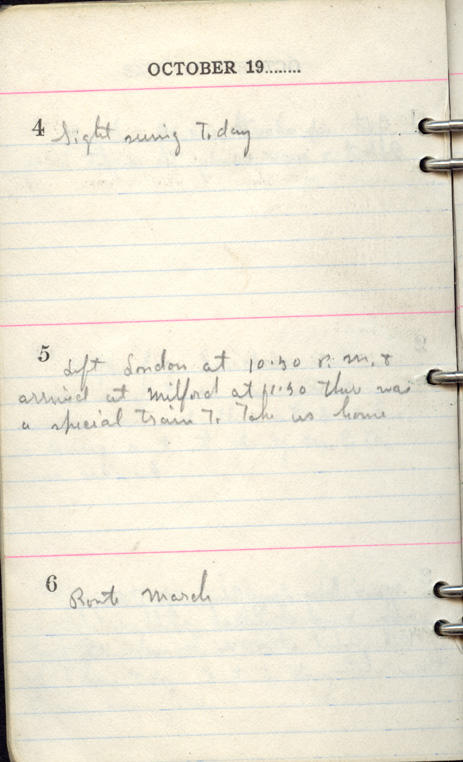 OCTOBER 19........
4 Sight seeing To day
5 Left London at 10.30 P.M. &
arrived at Milford at 11.30 Ther was
a special train to take us home
6 Route March